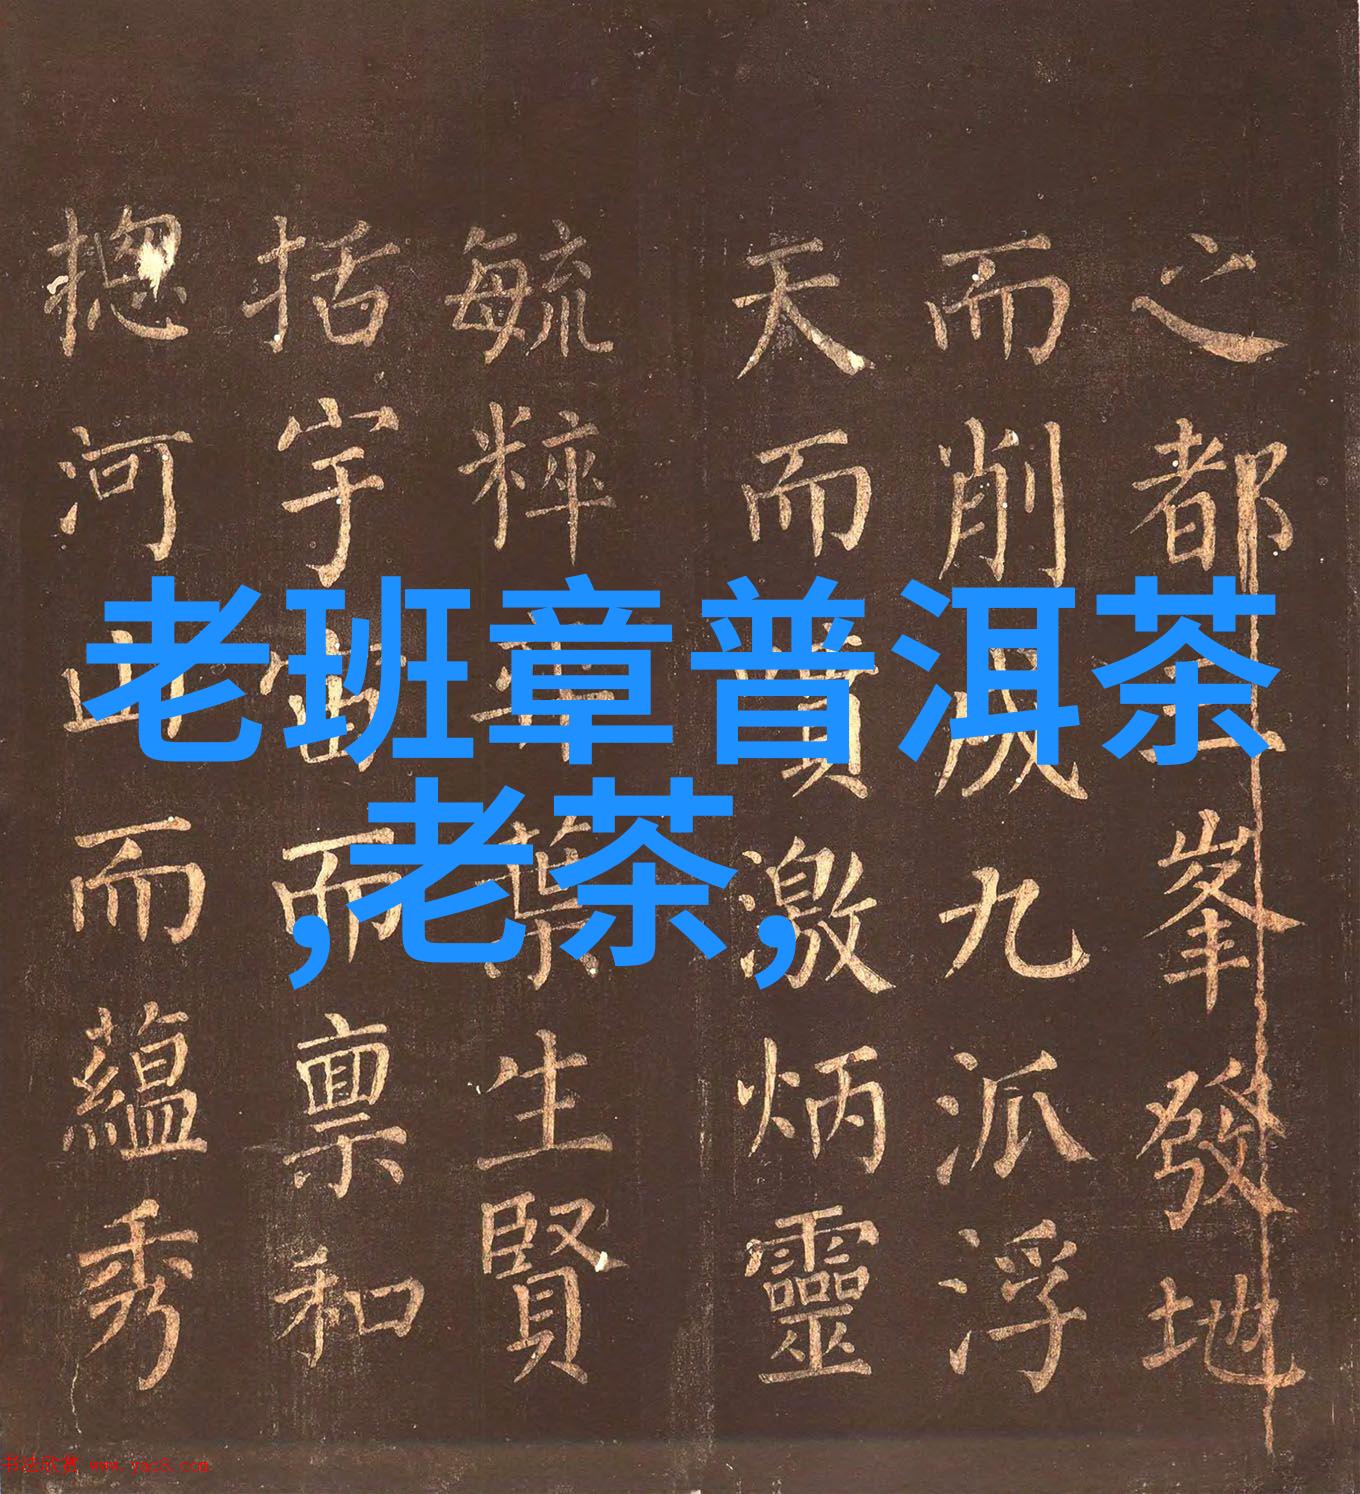 老班章普洱茶
,老茶,
之都三峯發地
而削成九派浮
天而噴激炳靈
毓粹葉生賢
括宇宙而禀和
揔河山而蘊秀
书法欣赏 www.yac8.com